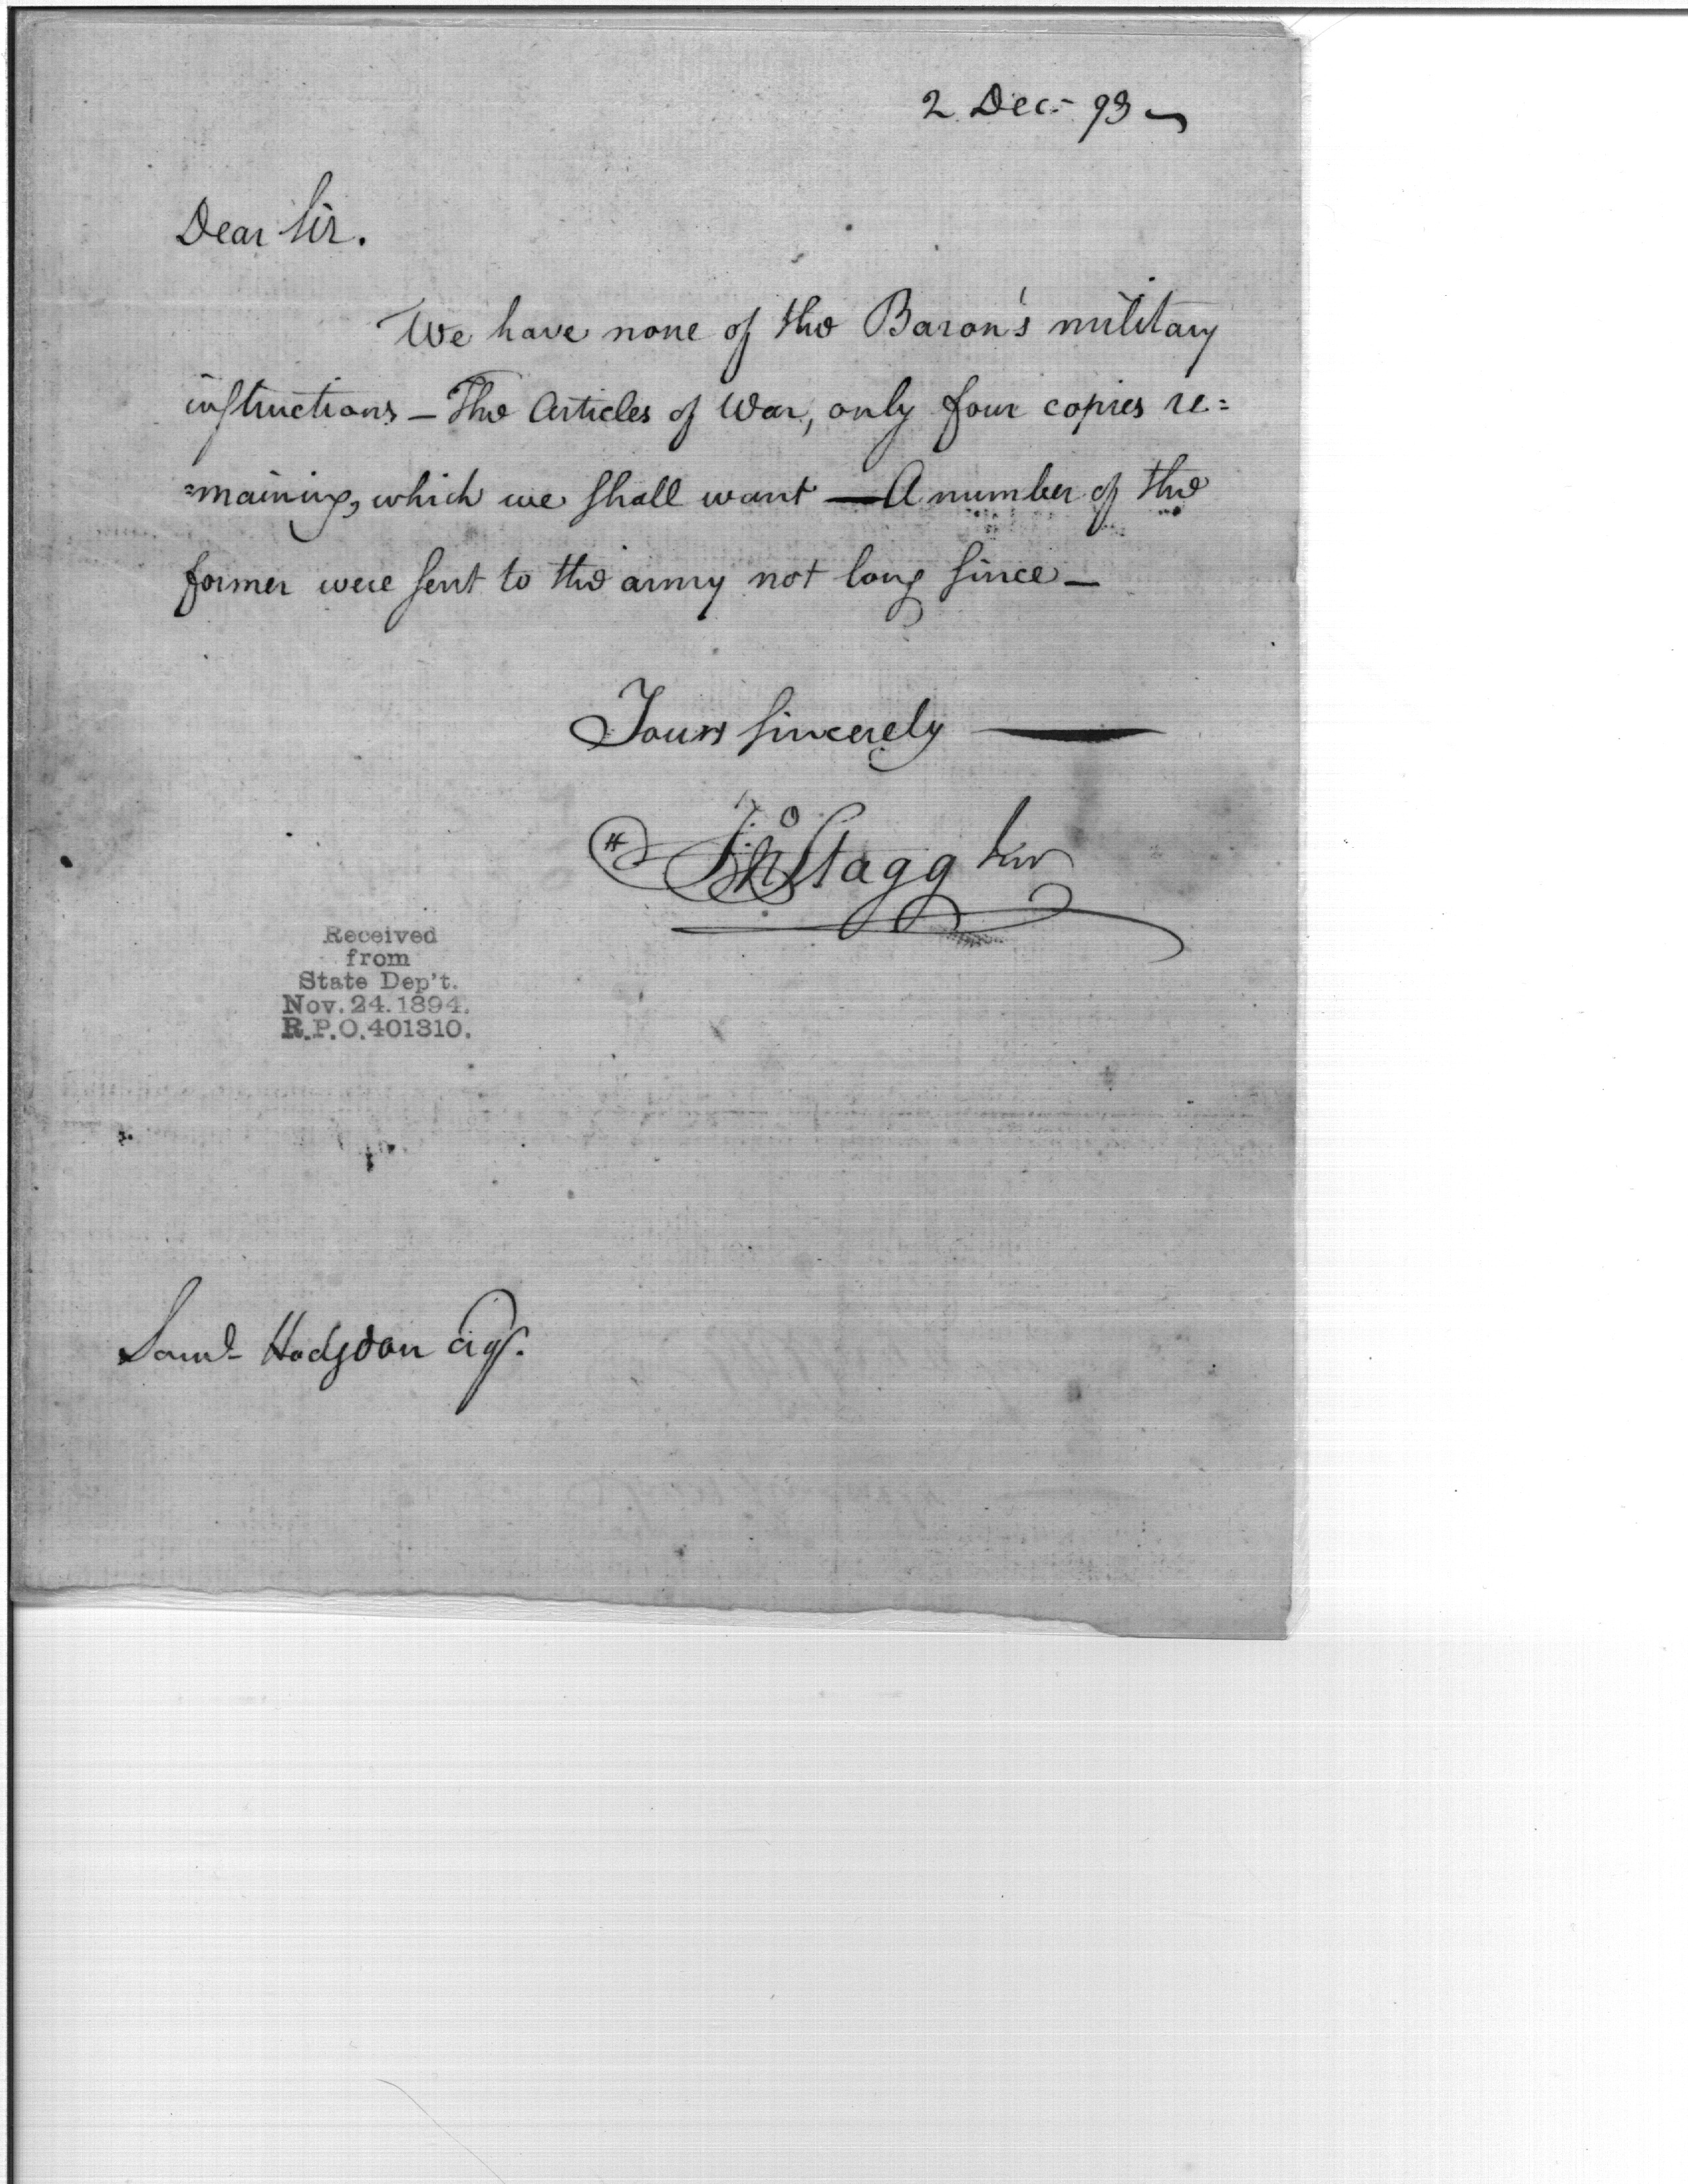 2 Dec:- 93
Dear Sir.
We have none of the Baron's military
instructions – The Articles of War, only four copies re=
=maining, which we shall want — A number of the
former were sent to the army not long since –
Yours sincerely —
Jno Stagg Junr
Received
from
State Dep't.
Nov. 24. 1894.
R.P.O. 401310.
Saml Hodgdon Esqr.